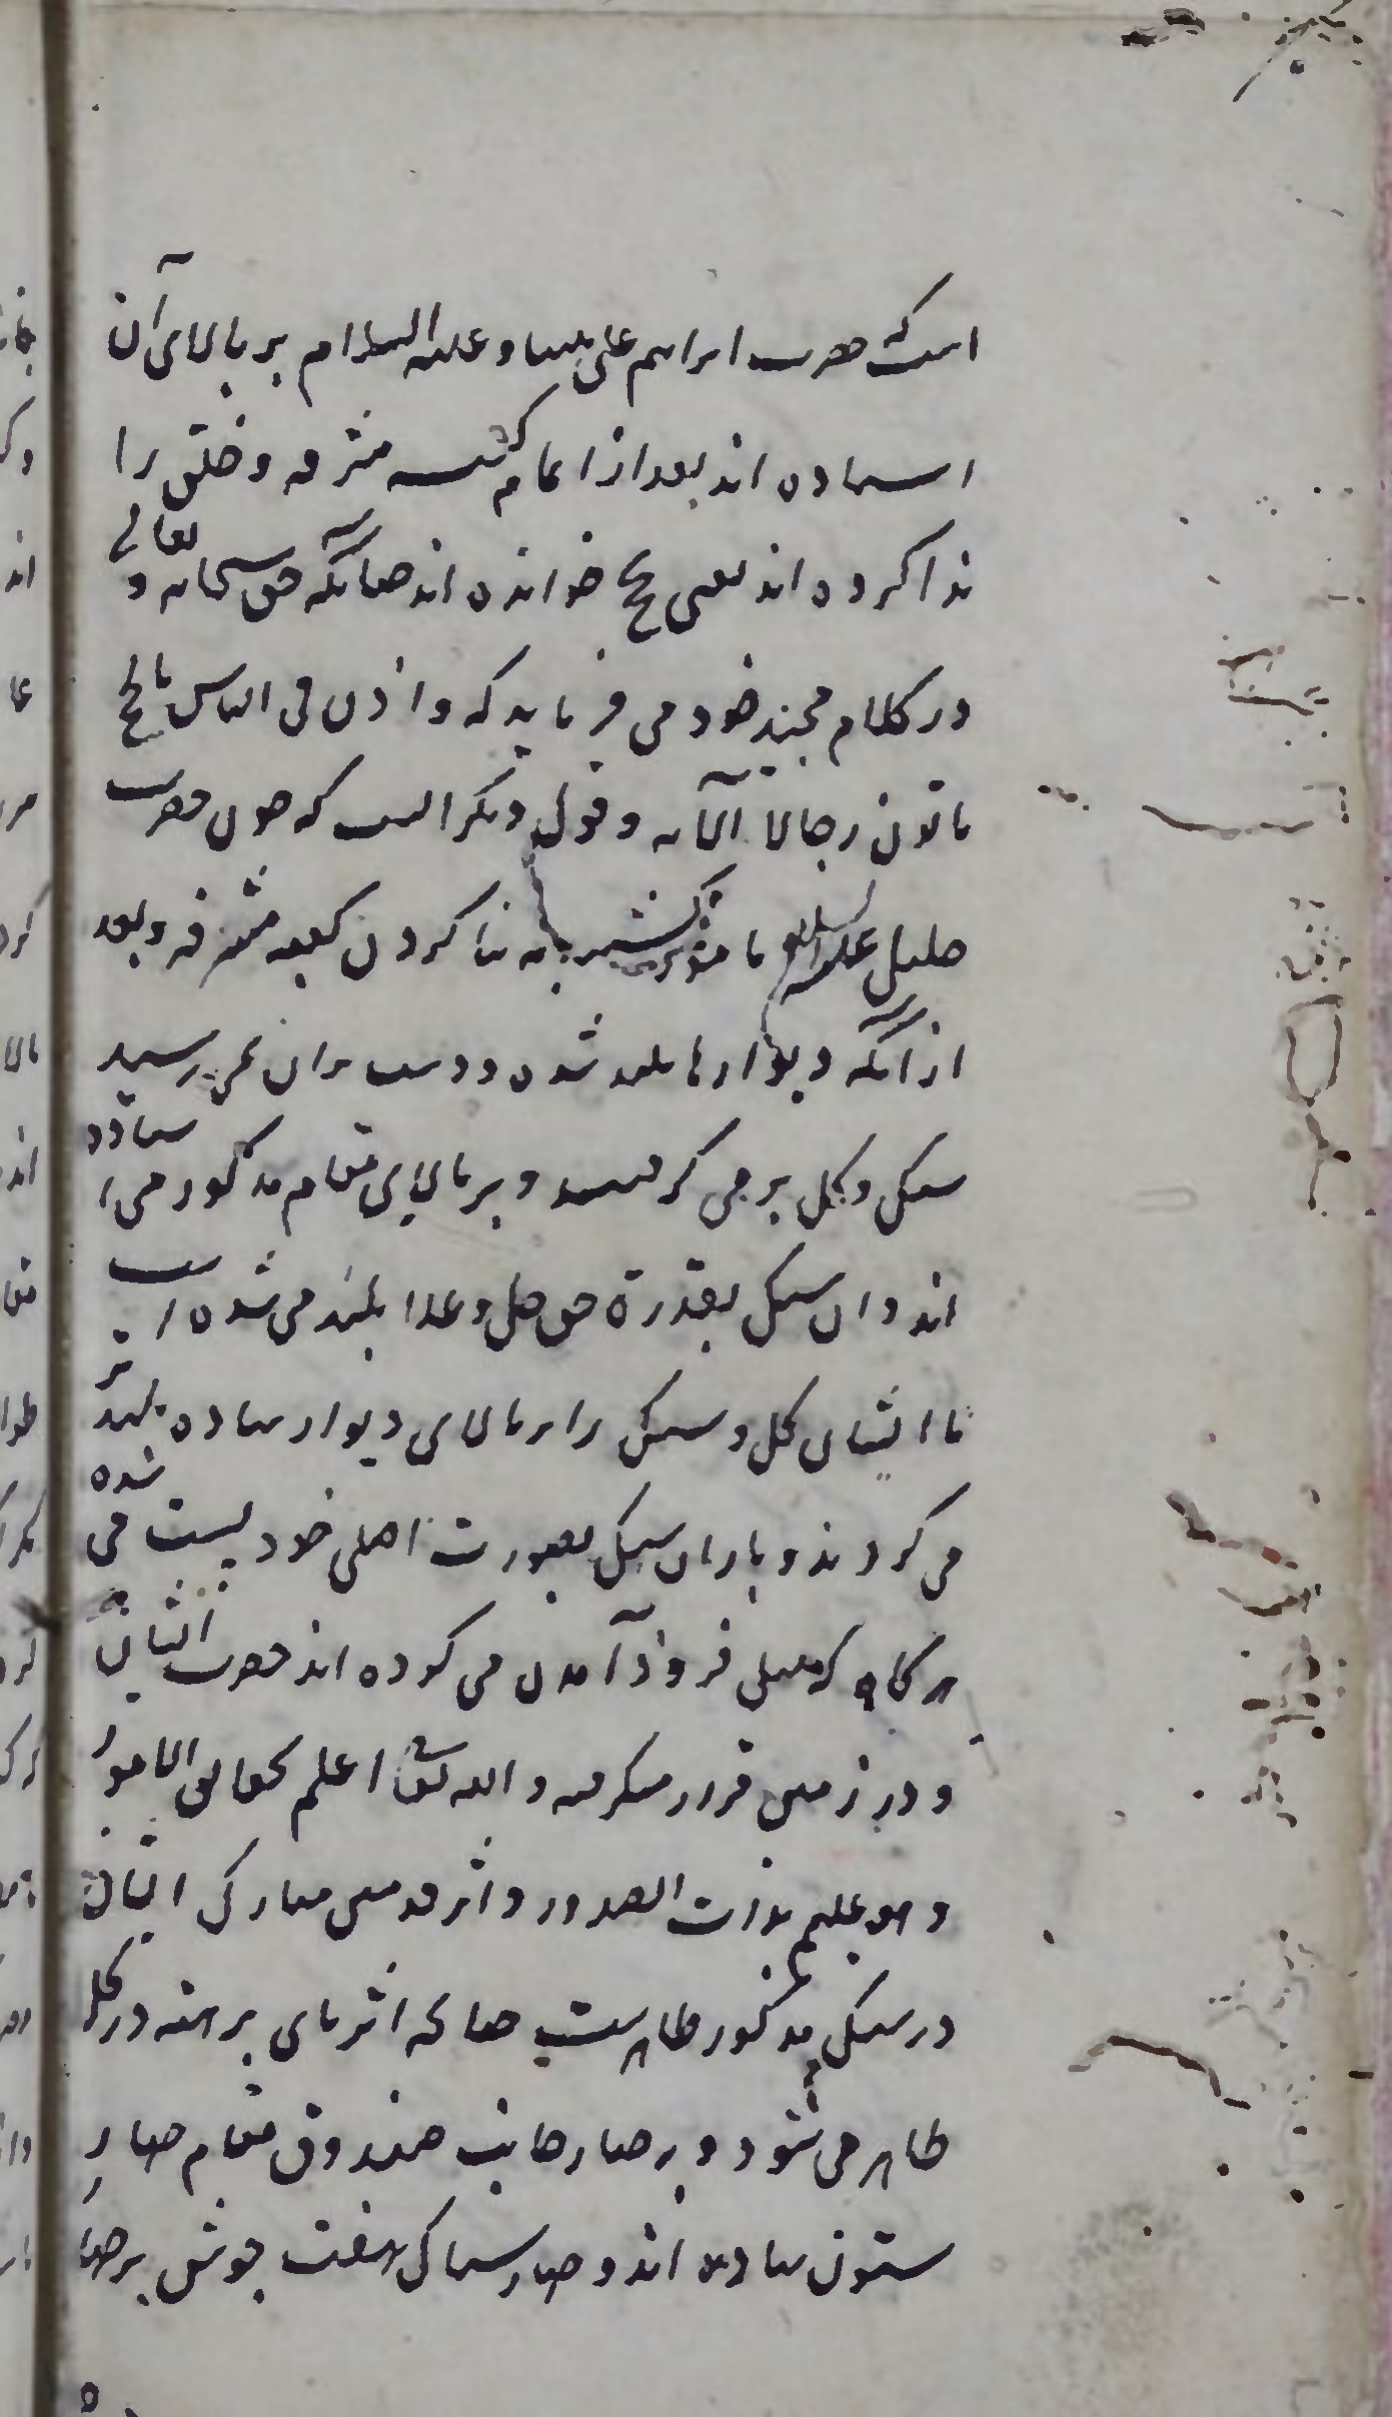 است که حضرت ابراهیم علی نبینا و علیه السلام بر بالای آن
استاده اند بعد از اتمام کعبه مشرفه و خلق را
ندا کرده اند یعنی بحج خوانده اند چنانکه حق سبحانه و تعالی
در کلام مجید خود می فرماید که و اذن فی الناس بالحج
یاتوک رجالا الآیه و قول دیگر است که چون حضرت
خلیل علیه السلام مامور گشتند به بنا کردن کعبه مشرفه و بعد
از آنکه دیوارها بلند شده و دست بران نمی رسید
سنگی و گل بر می گرفتند و بر بالای مقام مذکور می استاده
اند و ان سنگ بقدرة حق جل و علا بلند می شده است
تا ایشان گل و سنگ را بر بالای دیوار نهاده بلند تر
می کردند و باز ان سنگ بصورت اصلی خود پست می شده
هرگاه که میل فرود آمدن می کرده اند حضرت ایشان
و در زمین قرار میگرفته و الله تعالی اعلم بحقایق الامور
و هو علیم بذات الصدور و اثر قدمین مبارک ایشان
در سنگ مذکور ظاهر است چنانکه اثر پای برهنه در گل
ظاهر می شود و بر چهار جانب صندوق مقام چهار
ستون نهاده اند و چهار شباک هفت جوش بر چهار